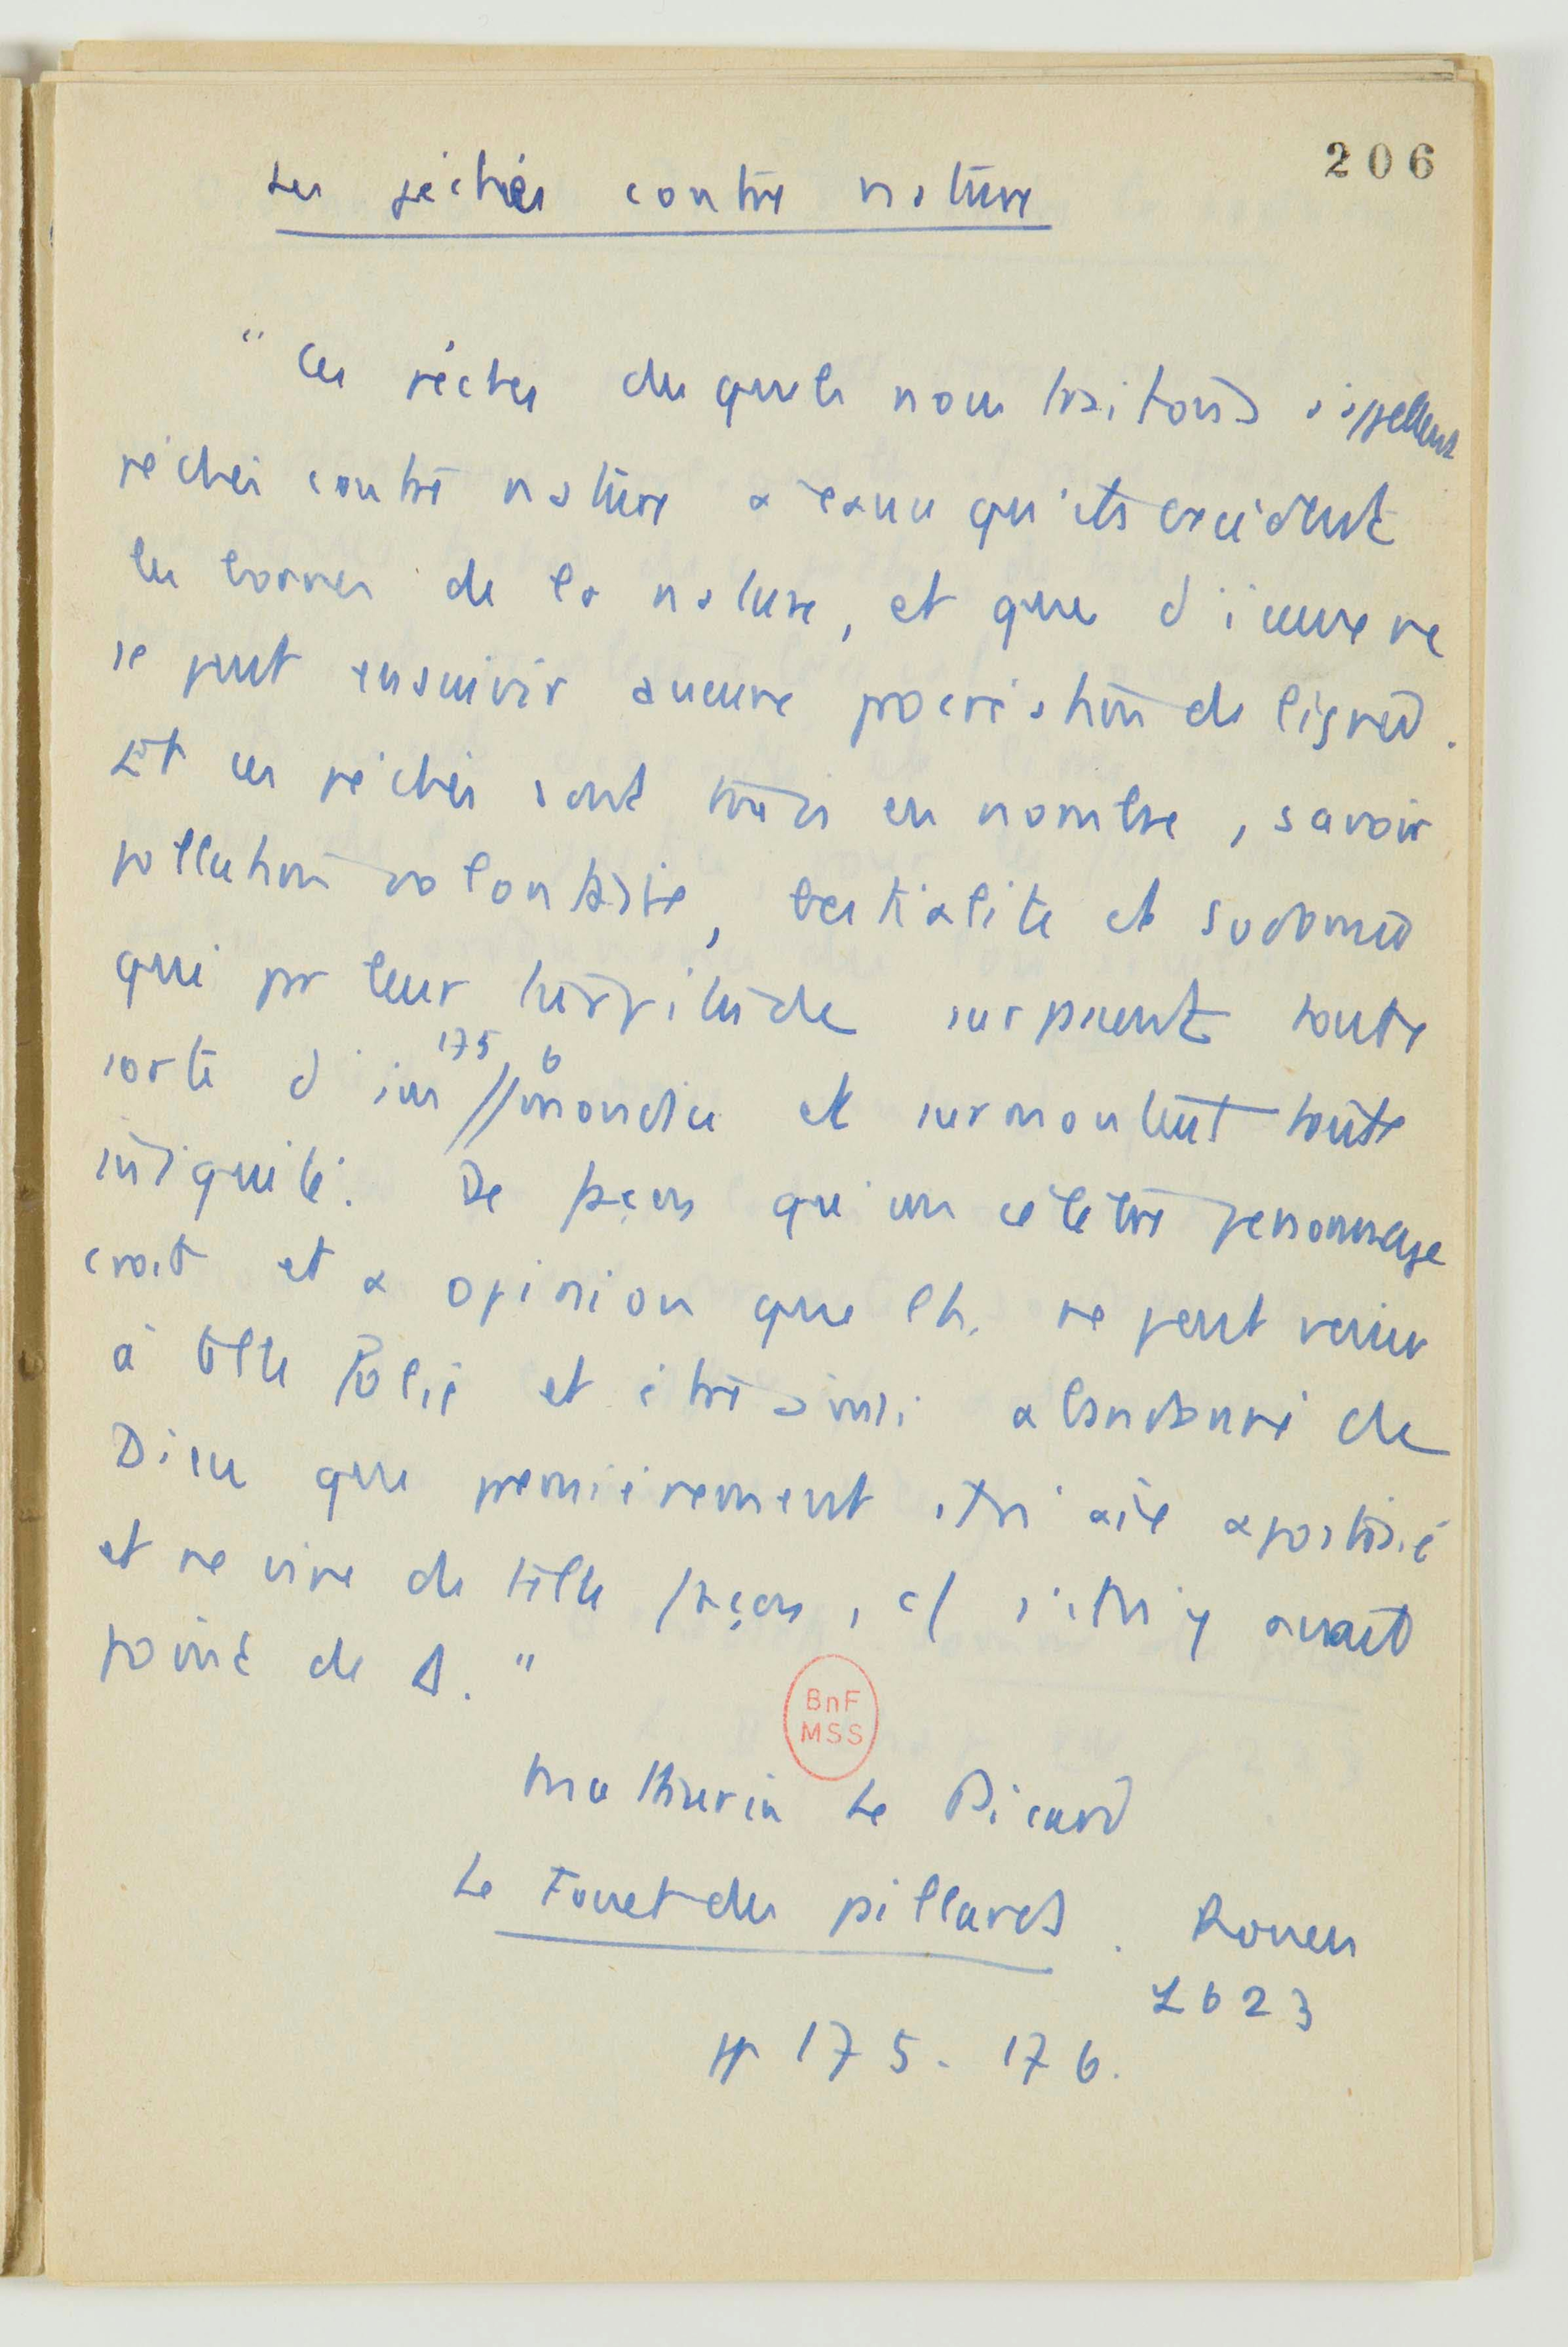 206
Les péchés contre nature
" Ces péchés desquels nous traitons s'appellent
péchés contre nature à cause qu'ils excèdent
les bornes de la nature, et que d'iceux ne
se peut ensuivir aucune procréation de lignée.
Et ces péchés sont trois en nombre, savoir
pollution volontaire, bestialité et sodomie
qui pr leur turpitude surpassent toute
sorte d'im//mondice et surmontent toute
175 6
iniquité. De façon qu'un célèbre personnage
croit et a opinion que l'h. ne peut venir
à telle folie et être ainsi abandonné de
Dieu que premièrement il n'ait apostasié
et ne vive de telle façon, c/ s'il n'y avait
point de Δ. "
BnF
MSS
Mathurin Le Picard
Le Fouet des paillards. Rouen
1623
pp 175-176.